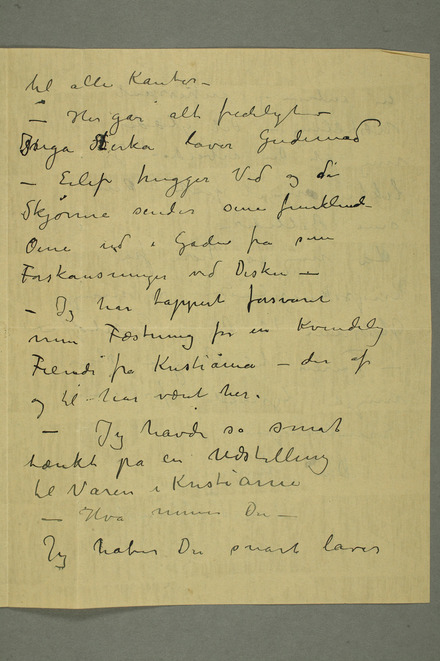 til alle Kanter –
– Her går alt fredeligt –
Inga Stærka laver Gudemad
– Eilef hugger Ved og de
Skjønne sender sine funklende
Øine ud i Gaden fra sine
Forskansninger ved Disken –
– Jeg har tappert forsvaret
min Fæstning for en Kvindelig
Fiende fra Kristiania – der af
og til har vært her.
– Jeg havde så småt
tænkt på en Udstilling
til Våren i Kristiania
– Hva mener Du –
Jeg håber Du snart laver